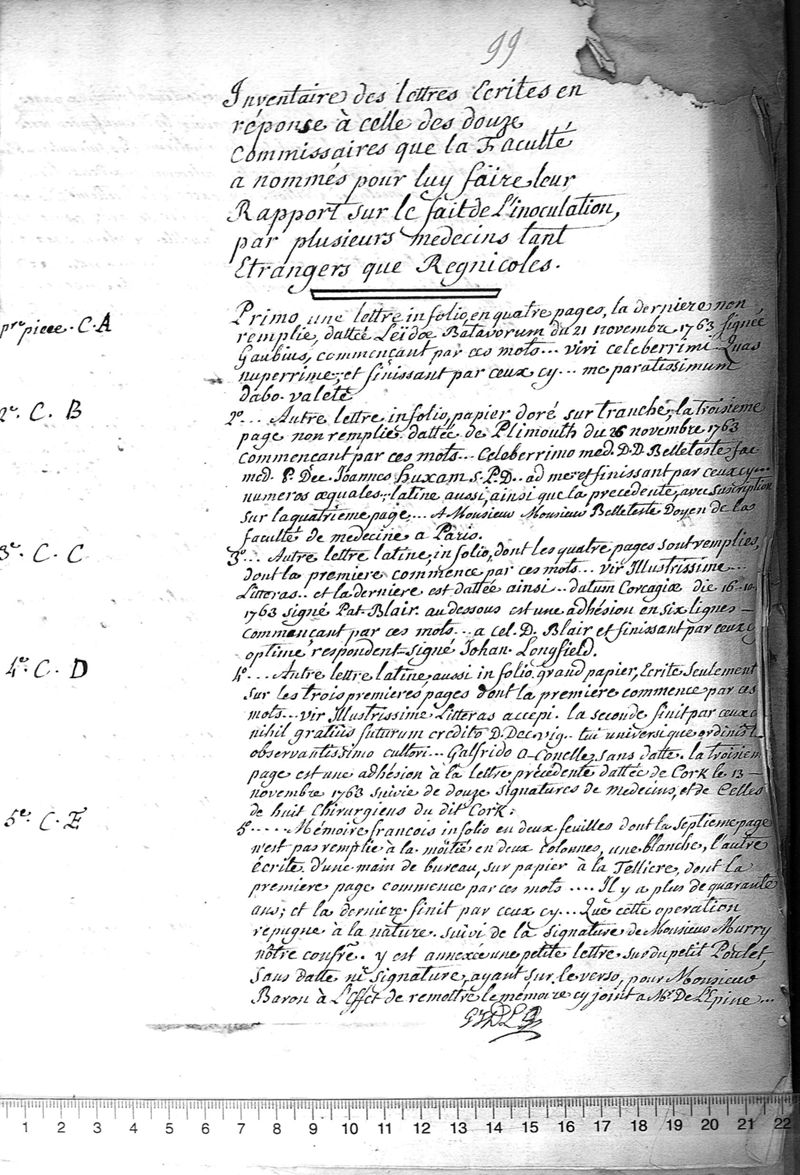 99
Inventaire des lettres Ecrites en
réponse à celle des douze
Commissaires que la Faculté
a nommés pour luy faire leur
Rapport sur le fait de L'inoculation,
par plusieurs medecins tant
Etrangers que Regnicoles.
pre piece. C. A
Primo une lettre in folio, en quatre pages, la derniere non
remplie, dattée Leïdæ Batavorum du 21 novembre 1763 signée
Gaubius, commençant par ces mots... viri celeberrimi Quas
nuperrime, et finissant par ceux cy... me paratissimum
dabo. valete
2e. C. B
2o... Autre lettre in folio, papier doré sur tranche, la troisieme
page non remplie. dattée de Plimouth du 26 novembre 1763
commencant par ces mots... Celeberrimo med. D.D. Belleteste fac
med. P. Dec. Joannes huxam S.P.D.. ad me et finissant par ceux cy...
numeros æquales, latine aussi, ainsi que la precedente, avec suscription
sur la quatrieme page... A Monsieur Monsieur Belleteste Doyen de la
faculté de medecine a Paris.
3e. C. C
3o... Autre lettre latine, in folio, dont les quatre pages sont remplies,
dont la premiere commence par ces mots... vir Illustrissime...
Litteras.. et la derniere est dattée ainsi... datum Corcagiæ die 16
1763 signé Pat. Blair. au dessous est une adhésion en six lignes
commançant par ces mots... a cel. D. Blair et finissant par ceux cy
optime respondent signé Johan. Longfield.
4e. C. D
4o... Autre lettre latine, aussi in folio, grand papier, Ecrite seulement
sur les trois premieres pages dont la premiere commence par ces
mots... vir Illustrissime Litteras accepi. la seconde finit par ceux
nihil gratius futurum credito D. tui universique ordinis
observantissimo cultori... Galfrido O-Conelle, sans datte. la troisiem
page est une adhésion à la lettre précédente dattée de Cork le 13
novembre 1763 suivie de douze signatures de medecins, et de Celles
de huit Chirurgiens du dit Cork:
5e. C. E
5..... Mémoire francois in folio en deux feuilles dont la septieme page
n'est pas remplie à la moitié en deux colonnes, une blanche, l'autre
écrite d'une main de bureau, sur papier à la Telliere, dont la
premiere page commence par ces mots.... Il y a plus de quarante
ans; et la derniere finit par ceux cy... Que cette operation
repugne à la nature. suivi de la signature de Monsieur Murry
nôtre confre. y est annexée une petite lettre sur du petit Poulet
sans datte ni signature, ayant sur le verso, pour Monsieur
Baron à L'effet de remettre le mémoire cy joint a Mr. De L'Epine...
1 2 3 4 5 6 7 8 9 10 11 12 13 14 15 16 17 18 19 20 21 22